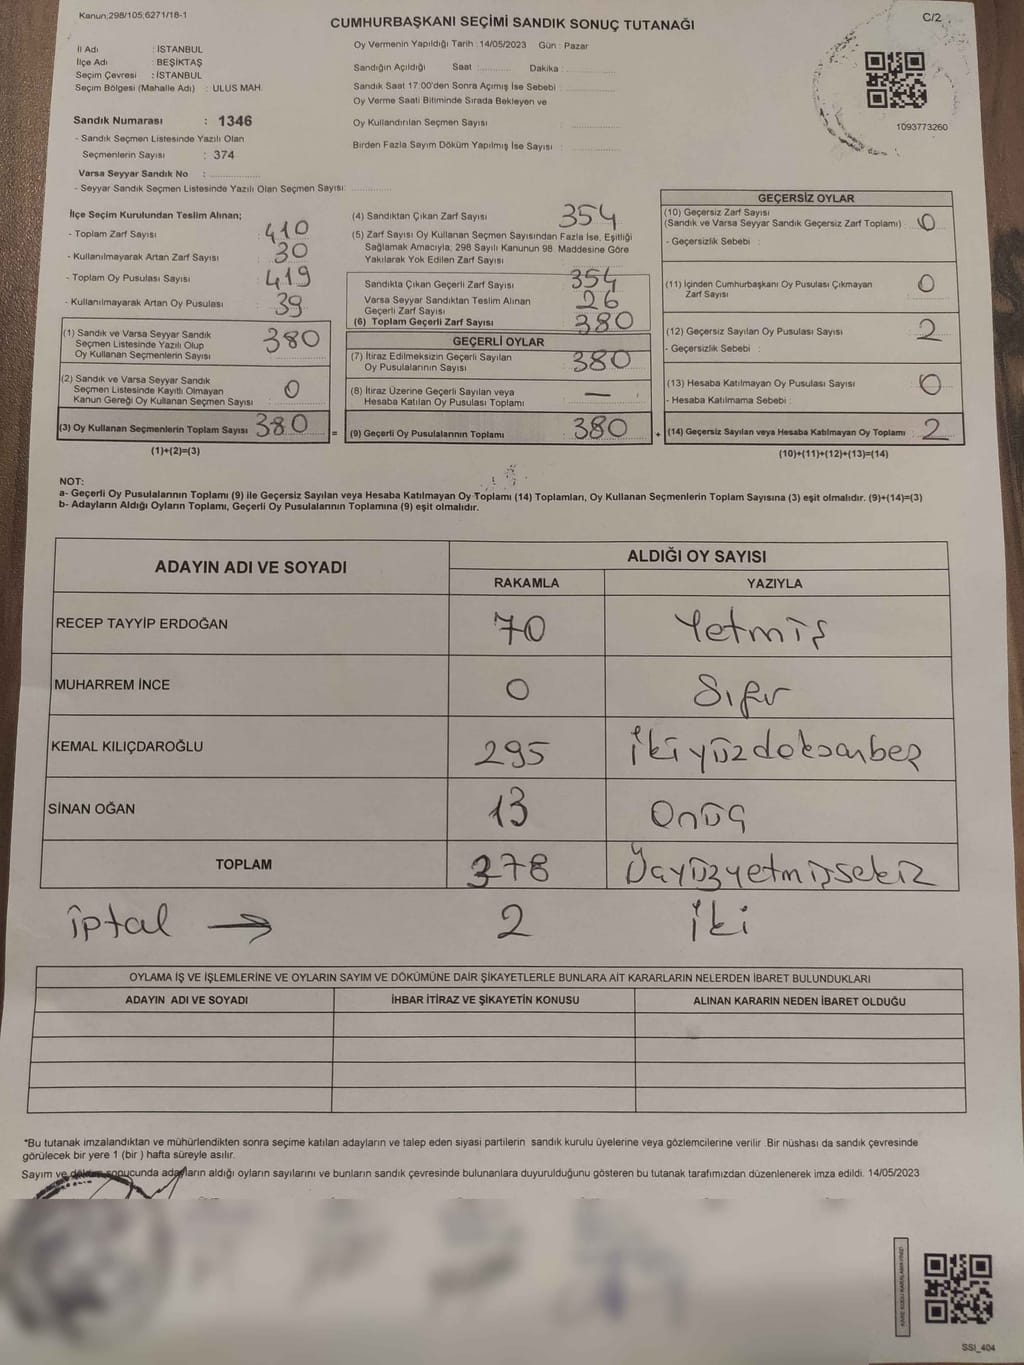 Kanun;298/105;6271/18-1
CUMHURBAŞKANI SEÇİMİ SANDIK SONUÇ TUTANAĞI
C/2
İl Adı : İSTANBUL
İlçe Adı : BEŞİKTAŞ
Seçim Çevresi : İSTANBUL
Seçim Bölgesi (Mahalle Adı) : ULUS MAH.
Sandık Numarası : 1346
- Sandık Seçmen Listesinde Yazılı Olan
Seçmenlerin Sayısı : 374
Varsa Seyyar Sandık No :
- Seyyar Sandık Seçmen Listesinde Yazılı Olan Seçmen Sayısı:
Oy Vermenin Yapıldığı Tarih : 14/05/2023 Gün : Pazar
Sandığın Açıldığı Saat : Dakika :
Sandık Saat 17:00'den Sonra Açımış İse Sebebi :
Oy Verme Saati Bitiminde Sırada Bekleyen ve
Oy Kullandırılan Seçmen Sayısı :
Birden Fazla Sayım Döküm Yapılmış İse Sayısı :
1093773260
İlçe Seçim Kurulundan Teslim Alınan;
- Toplam Zarf Sayısı : 410
- Kullanılmayarak Artan Zarf Sayısı : 30
- Toplam Oy Pusulası Sayısı : 419
- Kullanılmayarak Artan Oy Pusulası : 39
(1) Sandık ve Varsa Seyyar Sandık
Seçmen Listesinde Yazılı Olup
Oy Kullanan Seçmenlerin Sayısı : 380
(2) Sandık ve Varsa Seyyar Sandık
Seçmen Listesinde Kayıtlı Olmayan
Kanun Gereği Oy Kullanan Seçmen Sayısı : 0
(3) Oy Kullanan Seçmenlerin Toplam Sayısı : 380
(1)+(2)=(3)
(4) Sandıktan Çıkan Zarf Sayısı : 354
(5) Zarf Sayısı Oy Kullanan Seçmen Sayısından Fazla İse, Eşitliği
Sağlamak Amacıyla; 298 Sayılı Kanunun 98. Maddesine Göre
Yakılarak Yok Edilen Zarf Sayısı :
Sandıkta Çıkan Geçerli Zarf Sayısı : 354
Varsa Seyyar Sandıktan Teslim Alınan
Geçerli Zarf Sayısı : 26
(6) Toplam Geçerli Zarf Sayısı : 380
GEÇERLİ OYLAR
(7) İtiraz Edilmeksizin Geçerli Sayılan
Oy Pusulalarının Sayısı : 380
(8) İtiraz Üzerine Geçerli Sayılan veya
Hesaba Katılan Oy Pusulası Toplamı : —
= (9) Geçerli Oy Pusulalarının Toplamı : 380 +
GEÇERSİZ OYLAR
(10) Geçersiz Zarf Sayısı
(Sandık ve Varsa Seyyar Sandık Geçersiz Zarf Toplamı) : 0
- Geçersizlik Sebebi :
(11) İçinden Cumhurbaşkanı Oy Pusulası Çıkmayan
Zarf Sayısı : 0
(12) Geçersiz Sayılan Oy Pusulası Sayısı : 2
- Geçersizlik Sebebi :
(13) Hesaba Katılmayan Oy Pusulası Sayısı : 0
- Hesaba Katılmama Sebebi :
(14) Geçersiz Sayılan veya Hesaba Katılmayan Oy Toplamı : 2
(10)+(11)+(12)+(13)=(14)
NOT:
a- Geçerli Oy Pusulalarının Toplamı (9) ile Geçersiz Sayılan veya Hesaba Katılmayan Oy Toplamı (14) Toplamları, Oy Kullanan Seçmenlerin Toplam Sayısına (3) eşit olmalıdır. (9)+(14)=(3)
b- Adayların Aldığı Oyların Toplamı, Geçerli Oy Pusulalarının Toplamına (9) eşit olmalıdır.
ADAYIN ADI VE SOYADI
ALDIĞI OY SAYISI
RAKAMLA YAZIYLA
RECEP TAYYİP ERDOĞAN 70 Yetmiş
MUHARREM İNCE 0 Sıfır
KEMAL KILIÇDAROĞLU 295 İkiyüzdoksanbeş
SİNAN OĞAN 13 Onüç
TOPLAM 378 Üçyüzyetmişsekiz
iptal → 2 iki
OYLAMA İŞ VE İŞLEMLERİNE VE OYLARIN SAYIM VE DÖKÜMÜNE DAİR ŞİKAYETLERLE BUNLARA AİT KARARLARIN NELERDEN İBARET BULUNDUKLARI
ADAYIN ADI VE SOYADI İHBAR İTİRAZ VE ŞİKAYETİN KONUSU ALINAN KARARIN NEDEN İBARET OLDUĞU
*Bu tutanak imzalandıktan ve mühürlendikten sonra seçime katılan adayların ve talep eden siyasi partilerin sandık kurulu üyelerine veya gözlemcilerine verilir .Bir nüshası da sandık çevresinde
görülecek bir yere 1 (bir ) hafta süreyle asılır.
Sayım ve döküm sonucunda adayların aldığı oyların sayılarını ve bunların sandık çevresinde bulunanlara duyurulduğunu gösteren bu tutanak tarafımızdan düzenlenerek imza edildi. 14/05/2023
SSI_404